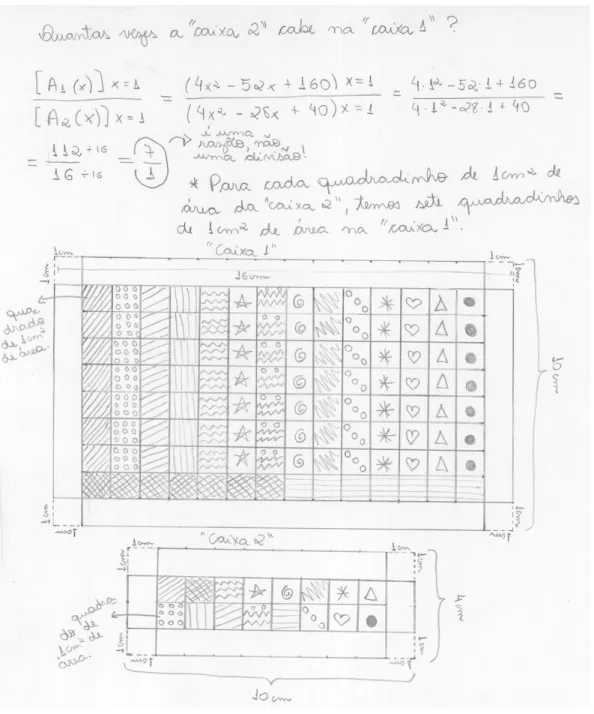 Quantas vezes a "caixa 2" cabe na "caixa 1" ?
[A₁(x)] x=1 / [A₂(x)] x=1 = (4x² - 52x + 160) x=1 / (4x² - 28x + 40) x=1 = 4·1² - 52·1 + 160 / 4·1² - 28·1 + 40 =
= 112 ÷16 / 16 ÷16 = 7 / 1
é uma
razão, não
uma divisão!
* Para cada quadradinho de 1cm² de
área da "caixa 2", temos sete quadradinhos
de 1cm² de área na "caixa 1".
"Caixa 1"
1cm
1cm
1cm
1cm
16cm
qua
drado
de 1cm²
de área.
10cm
1cm
1cm
1cm
1cm
"Caixa 2"
1cm
1cm
1cm
1cm
quadra
do de
1cm² de
área.
4cm
1cm
1cm
1cm
1cm
10cm